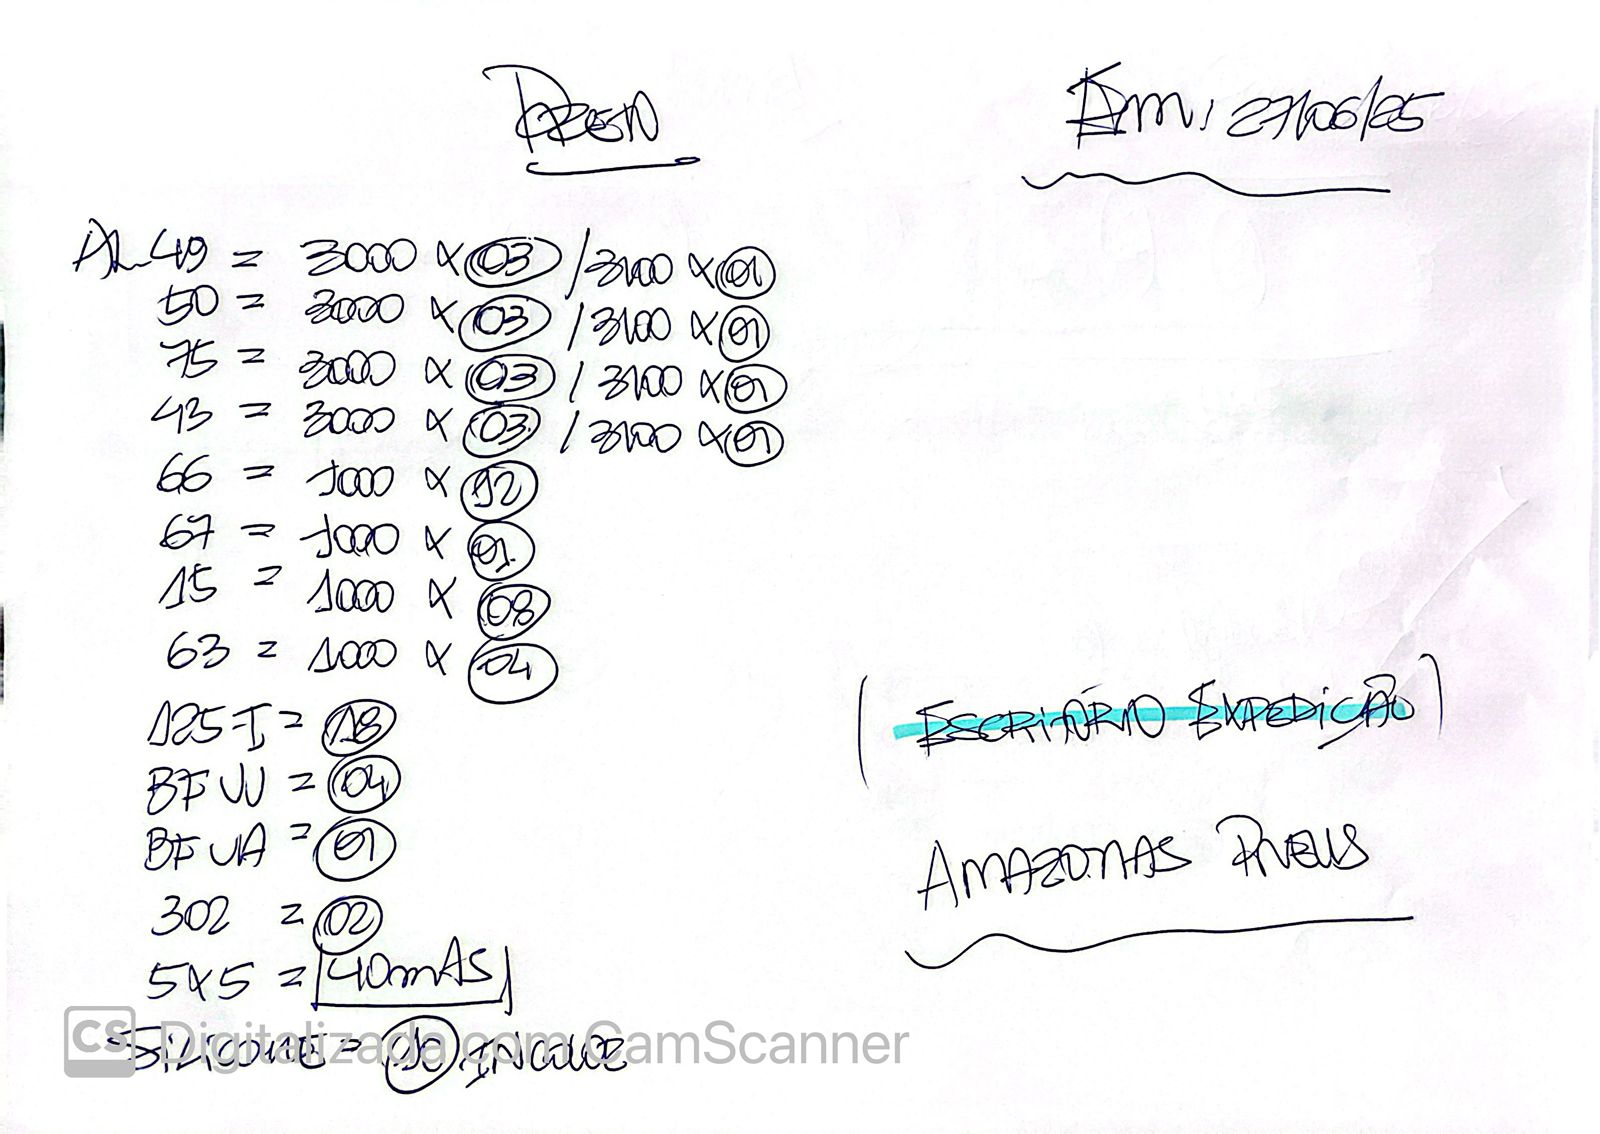 Em: 27/06/25
AL 49 = 3000 x 03 / 3100 x 01
50 = 3000 x 03 / 3100 x 01
75 = 3000 x 03 / 3100 x 01
43 = 3000 x 03 / 3100 x 01
66 = 1000 x 12
67 = 1000 x 01
15 = 1000 x 08
63 = 1000 x 04
125-I = 18
BF UU = 04
BF UA = 01
302 = 02
5x5 = 40mAS
SILICONE = 10 INCOLOR
(ESCRITÓRIO EXPEDIÇÃO)
AMAZONAS PNEUS
CS Digitalizada com CamScanner